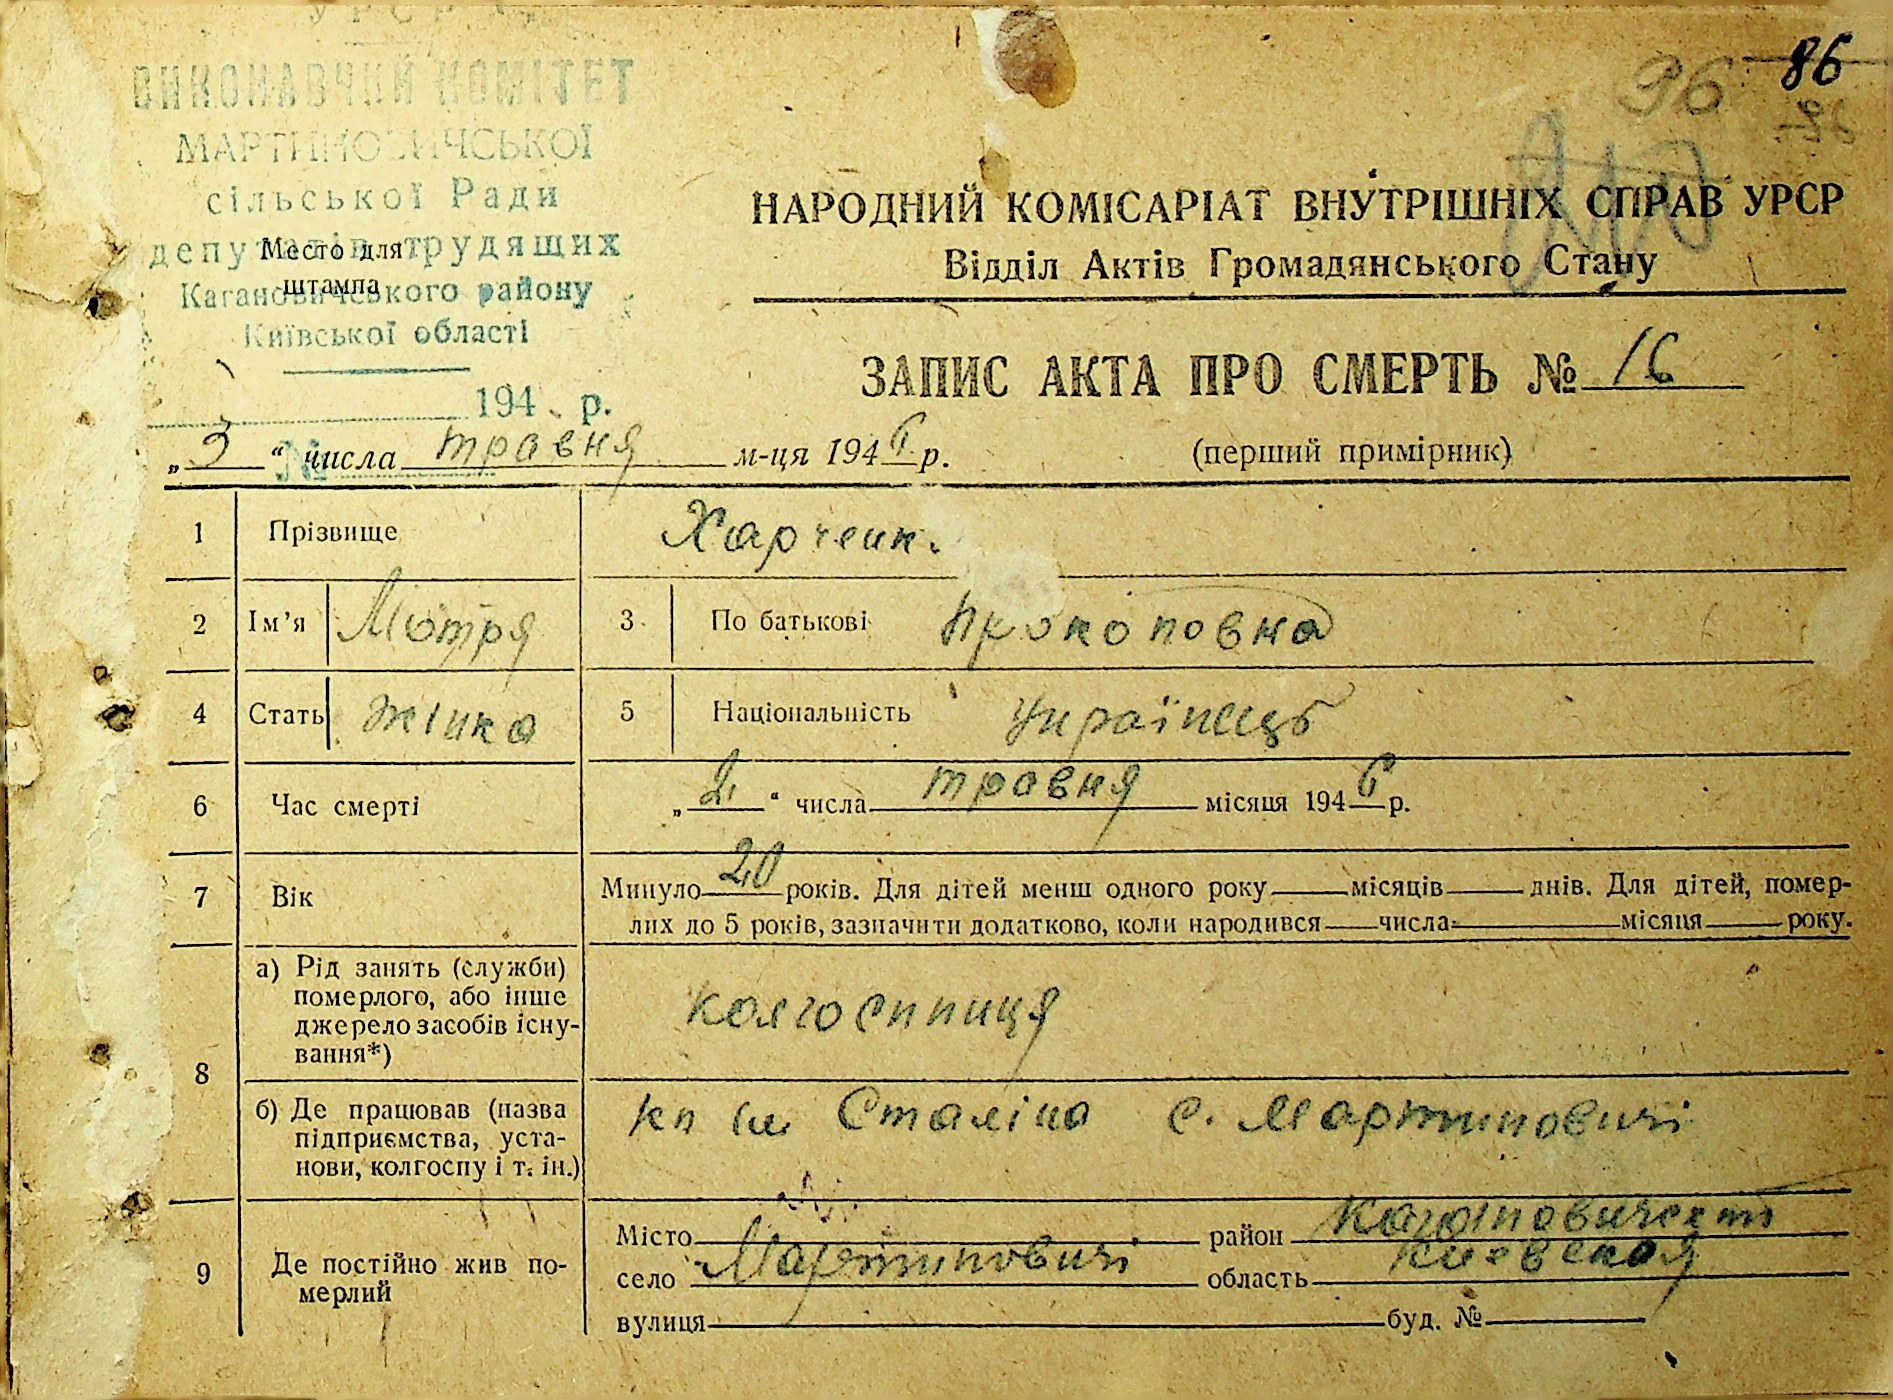 УРСР
ВИКОНАВЧИЙ КОМІТЕТ
МАРТИНОВИЧСЬКОЇ
сільської Ради
депутатів трудящих
Место для
штампа
Кагановичського району
Київської області
194 р.
№
96
86
НАРОДНИЙ КОМІСАРІАТ ВНУТРІШНІХ СПРАВ УРСР
Відділ Актів Громадянського Стану
ЗАПИС АКТА ПРО СМЕРТЬ № 16
„3“ числа травня м-ця 1946 р.
(перший примірник)
1 Прізвище Харченк.
2 Ім’я Мотря 3 По батькові Прокоповна
4 Стать жінка 5 Національність Українець
6 Час смерті „2“ числа травня місяця 1946 р.
7 Вік Минуло 20 років. Для дітей менш одного року місяців днів. Для дітей, помер-
лих до 5 років, зазначити додатково, коли народився числа місяця року.
8 а) Рід занять (служби)
померлого, або інше
джерело засобів існу-
вання*)
колгоспниця
б) Де працював (назва
підприємства, уста-
нови, колгоспу і т. ін.)
кп ім Сталіна с. Мартиновичі
9 Де постійно жив по-
мерлий
Місто район Кагановичский
село Мартиновичі область Киевская
вулиця буд. №